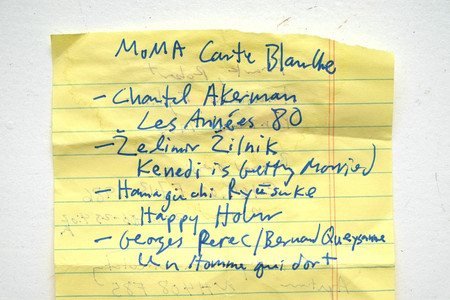 MoMA Carte Blanche
- Chantel Akerman
Les Années 80
- Želimir Žilnik
Kenedi is Getting Married
- Hamaguchi Ryūsuke
Happy Hour
- Georges Perec/Bernard Queysanne
Un Homme qui dort